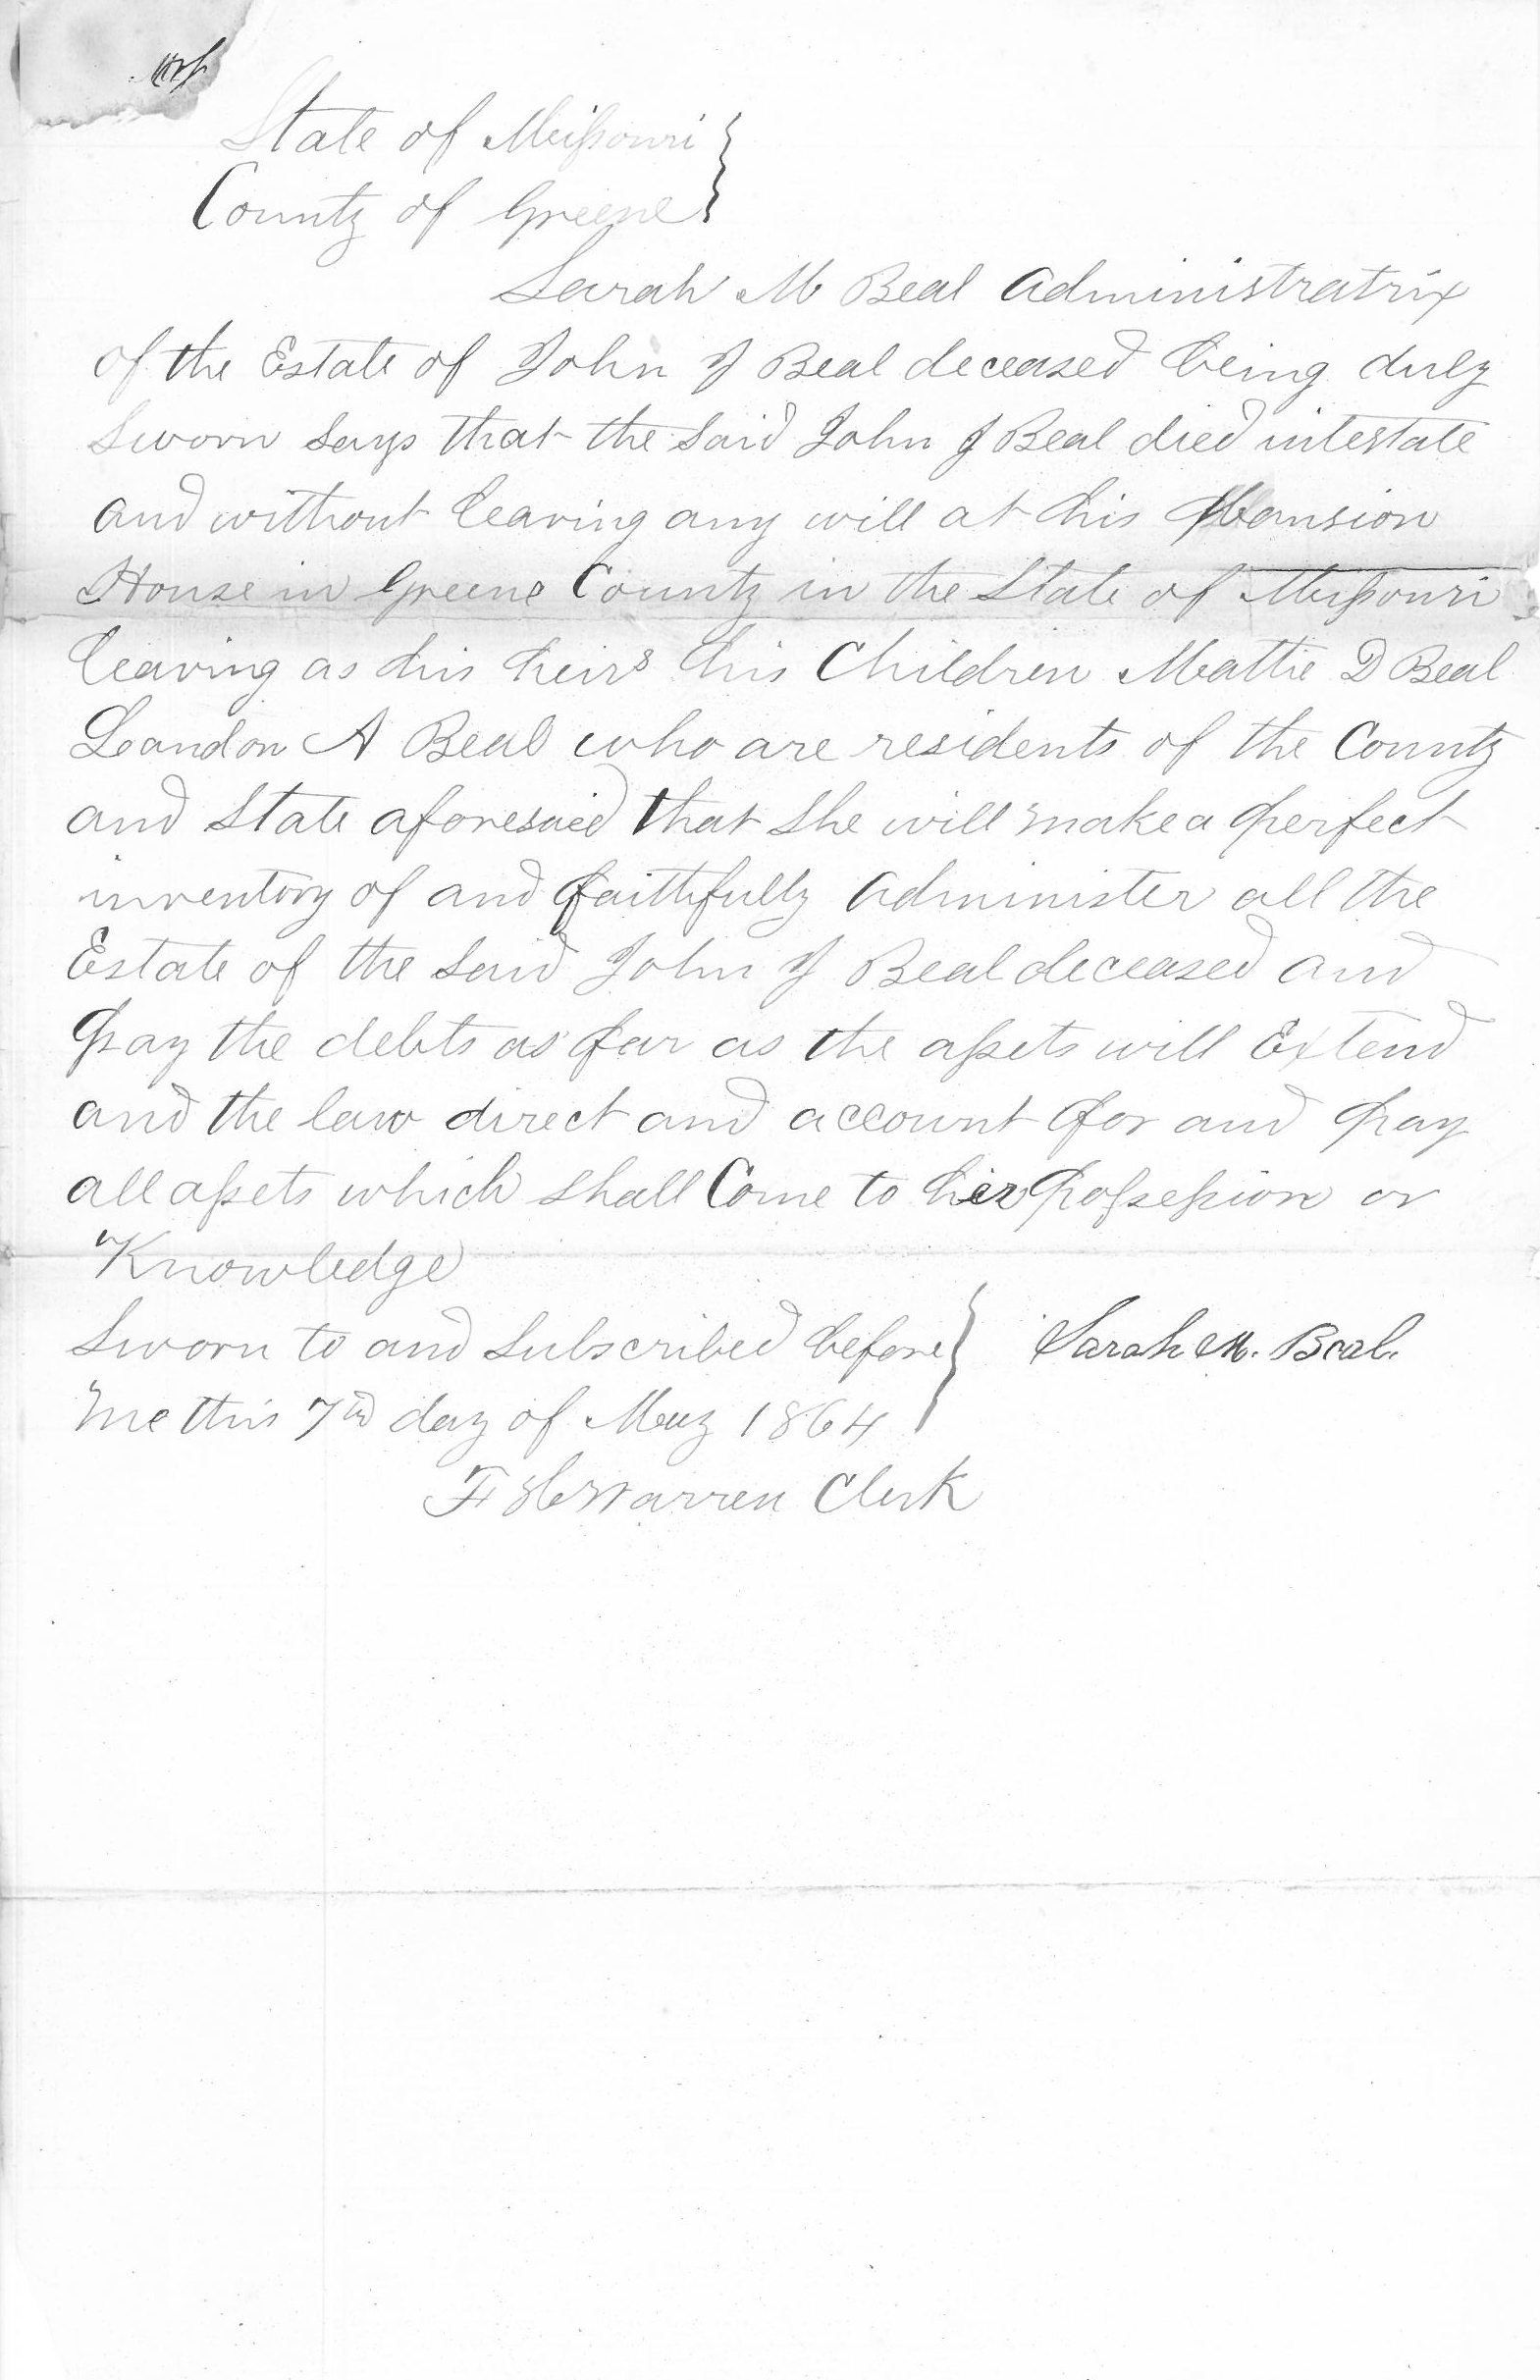 State of Missouri }
County of Greene }
Sarah M Beal Administratrix
of the Estate of John J Beal deceased being duly
Sworn says that the Said John J Beal died intestate
and without leaving any will at his Mansion
House in Greene County in the State of Missouri
leaving as his heirs his Children Mattie D Beal
Landon A Beal who are residents of the County
and State aforesaid that She will make a perfect
inventory of and faithfully Administer all the
Estate of the Said John J Beal deceased and
pay the debts as far as the assets will Extend
and the law direct and account for and pay
all assets which shall Come to her possession or
Knowledge
Sworn to and Subscribed before } Sarah M. Beal.
me this 7th day of May 1864
F H Warren Clerk